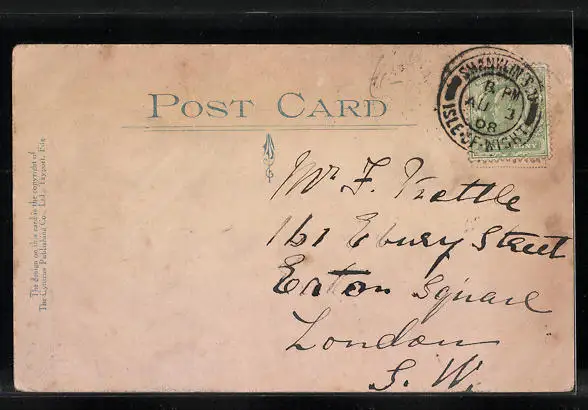 POST CARD
SHANKLIN S.O
8 PM
AU 3
08
ISLE-OF-WIGHT
Mr F. Trettle
161 Ebury Street
Eaton Square
London
S. W.
The design on this card is the copyright of
The Cynicus Publishing Co., Ltd., Tayport, Fife